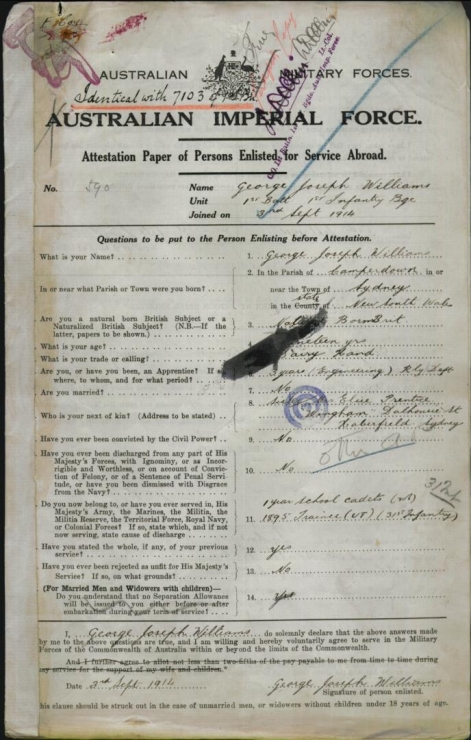 AUSTRALIAN MILITARY FORCES.
Identical with 7103
AUSTRALIAN IMPERIAL FORCE.
Attestation Paper of Persons Enlisted for Service Abroad.
No. 590 Name George Joseph Williams
Unit 1st Batt 1st Infantry Bge
Joined on 3rd Sept 1914
Questions to be put to the Person Enlisting before Attestation.
What is your Name? 1. George Joseph Williams
In or near what Parish or Town were you born? 2. In the Parish of Camperdown in or
near the Town of Sydney
state
in the County of New South Wales
Are you a natural born British Subject or a Naturalized British Subject? (N.B.—If the latter, papers to be shown.) 3. Born Brit
What is your age? yrs
What is your trade or calling? Dairy Hand
Are you, or have you been, an Apprentice? If so, where, to whom, and for what period? years (Engineering) Rly Dept
Are you married? 7. No
Who is your next of kin? (Address to be stated) 8. Prentice
Dalhousie St
Haberfield Sydney
Have you ever been convicted by the Civil Power? 9. No
Have you ever been discharged from any part of His Majesty's Forces, with Ignominy, or as Incorrigible and Worthless, or on account of Conviction of Felony, or of a Sentence of Penal Servitude, or have you been dismissed with Disgrace from the Navy? 10. No
Do you now belong to, or have you ever served in, His Majesty's Army, the Marines, the Militia, the Militia Reserve, the Territorial Force, Royal Navy, or Colonial Forces? If so, state which, and if not now serving, state cause of discharge
1 year school cadets
11. 1895 Trainee (31st Infantry)
Have you stated the whole, if any, of your previous service? 12. Yes
Have you ever been rejected as unfit for His Majesty's Service? If so, on what grounds? 13. No
(For Married Men and Widowers with children)—
Do you understand that no Separation Allowance will be issued to you either before or after embarkation during your term of service? 14. Yes
I, George Joseph Williams do solemnly declare that the above answers made
by me to the above questions are true, and I am willing and hereby voluntarily agree to serve in the Military
Forces of the Commonwealth of Australia within or beyond the limits of the Commonwealth.
And I further agree to allot not less than two-fifths of the pay payable to me from time to time during
my service for the support of my wife and children.
Date 3rd Sept 1914 George Joseph Williams
Signature of person enlisted.
his clause should be struck out in the case of unmarried men, or widowers without children under 18 years of age.